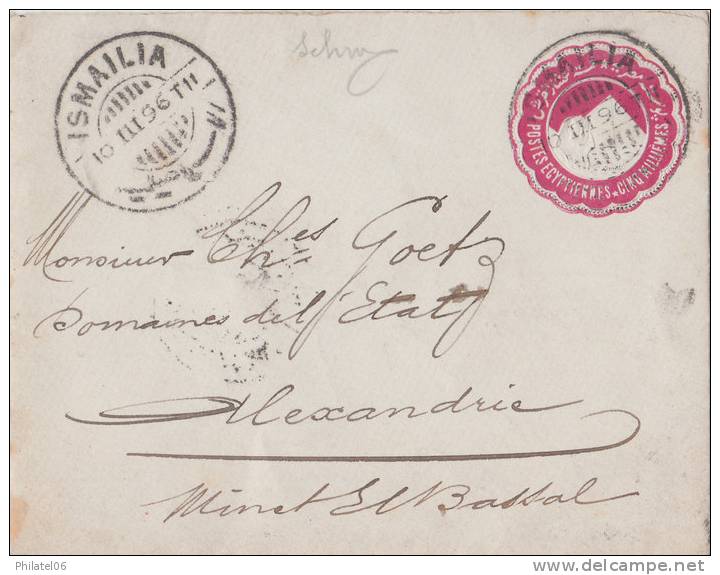 ISMAILIA
10 III 96 T11
ISMAILIA
10 III 96 T11
POSTES EGYPTIENNES ★ CINQ MILLIEMES
Monsieur Ch^es Goetz
Domaines de l'Etat
Alexandrie
Minet El Bassal
Philatel06
delcampe.net